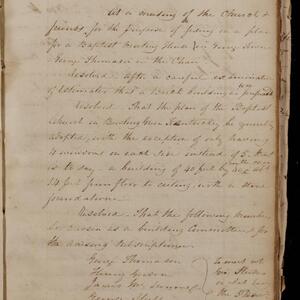 At a meeting of the Church &
friends, for the purpose of fixing on a plan
for a Baptist Meeting House in
Henry Thomason in the Chair
Resolved. After a careful examination
of Estimates that a Brick building be
Resolved. That the plan of the Baptist
Church in Burlington Kentucky be
adopted, with the exception of only having
4 windows on each side instead of 5. that
is to say, a building of 40 feet by
14 feet from floor to ceiling, with a stone
foundation.
Resolved. That the following
be chosen as a building Committee & for
the raising subscriptions
Henry Thomason
Henry
James W.
George
to meet at
the